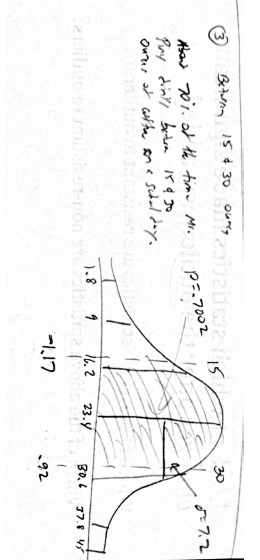 ③ Between 15 & 30 ounces
About 70% of the time Mr.
drinks between 15 & 30
ounces of coffee on a school day.
P = .7002
15
30
σ = 7.2
1.8 9 16.2 23.4 30.6 37.8 45
-1.17 .92